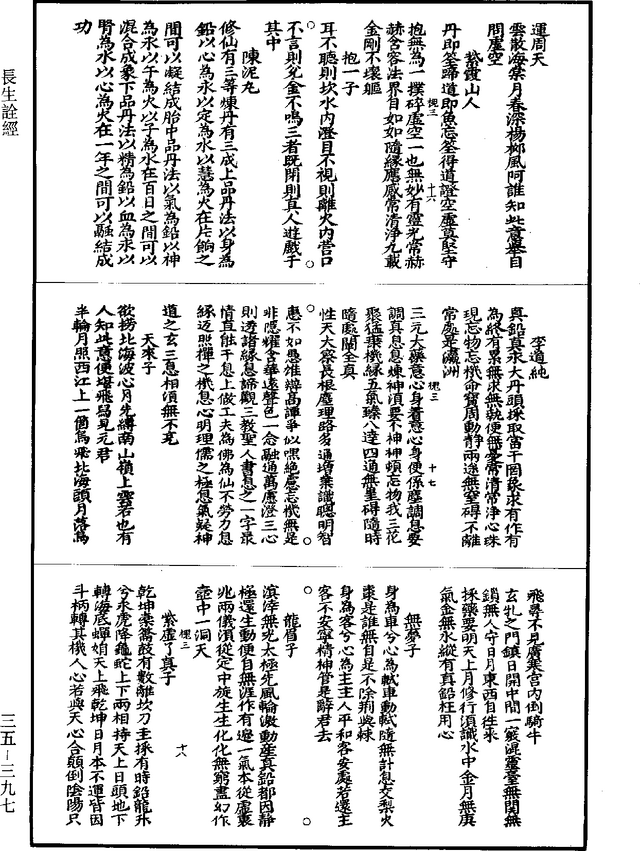 長生詮經
三五－三九七
運周天
雲散海棠月春深楊柳風阿誰知此意舉目
問虛空
紫霞山人
丹即筌蹄道即魚忘筌得道證空虛真堅守
抱無為一撲碎虛空一也無妙有靈光常赫
槐三
十六
赫含容法界自如如隨緣應感常清淨九載
金剛不壞軀
抱一子
耳不聽則坎水內澄目不視則離火內營口
不言則兌金不鳴三者既閉則真人遊戲于
其中
陳泥丸
修仙有三等煉丹有三成上品丹法以身為
鉛以心為汞以定為水以慧為火在片餉之
間可以凝結成胎中品丹法以氣為鉛以神
為汞以午為火以子為水在百日之間可以
混合成象下品丹法以精為鉛以血為汞以
腎為水以心為火在一年之間可以融結成
功
李道純
真鉛真汞大丹頭採取當于罔象求有作有
為終有累無求無執便無憂常清常淨心珠
現忘物忘機命寶周動靜兩途無窒礙不離
常處是瀛洲
三元大藥意心身著意心身便係塵調息要
槐三
十七
調真息息煉神須要不神神頓忘物我三花
聚猛棄機緣五氣臻八達四通無罣礙隨時
隨處闡全真
性天大察長根塵理路多通增業識聰明智
慧不如愚雄辯高譚爭似嘿絕慮忘機無是
非隱耀含華遠聲色一念融通萬慮澄三心
則透諸緣息諦觀三教聖人書息之一字最
情直能于息上做工夫為佛為仙不勞力息
緣返照禪之機息心明理儒之極息氣凝神
道之玄三息相須無不克
天來子
欲撈北海波心月先縛南山嶺上雲若也有
人知此意便堪飛舄見元君
半輪月照西江上一箇烏飛北海頭月落烏
飛尋不見廣寒宮內倒騎牛
玄牝之門鎮日開中間一竅混靈臺無關無
鎖無人守日月東西自往來
採藥要明天上月修行須識水中金月無庚
氣金無水縱有真鉛枉用心
無夢子
身為車兮心為軾車動軾隨無計息交梨火
棗是誰無自是不除荊與棘
身為客兮心為主主人平和客安處若還主
客不安寧精神管是辭君去
龍眉子
溟涬無光太極先風輪激動產真鉛都因靜
極還生動便自無涯作有邊一氣本從虛裏
兆兩儀須從定中旋生生化化無窮盡幻作
壺中一洞天
槐三
十八
紫虛了真子
乾坤橐籥鼓有數離坎刀圭採有時鉛龍升
兮汞虎降龜蛇上下兩相持天上日頭地下
轉海底蟬娟天上飛乾坤日月本不運皆因
斗柄轉其機人心若與天心合顛倒陰陽只